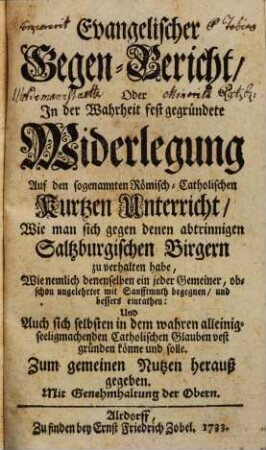 Evangelischer
Gegen-Bericht/
Oder
In der Wahrheit fest gegründete
Widerlegung
Auf den sogenannten Römisch-Catholischen
Kurtzen Unterricht/
Wie man sich gegen denen abtrinnigen
Saltzburgischen Birgern
zu verhalten habe,
Wie nemlich denenselben ein jeder Gemeiner, ob-
schon ungelehrter mit Sanfftmuth begegnen/ und
bessers einrathen:
Und
Auch sich selbsten in dem wahren alleinig-
seeligmachenden Catholischen Glauben vest
gründen könne und solle.
Zum gemeinen Nutzen herauß
gegeben.
Mit Genehmhaltung der Obern.
Altdorff,
Zu finden bey Ernst Friedrich Zobel. 1733.